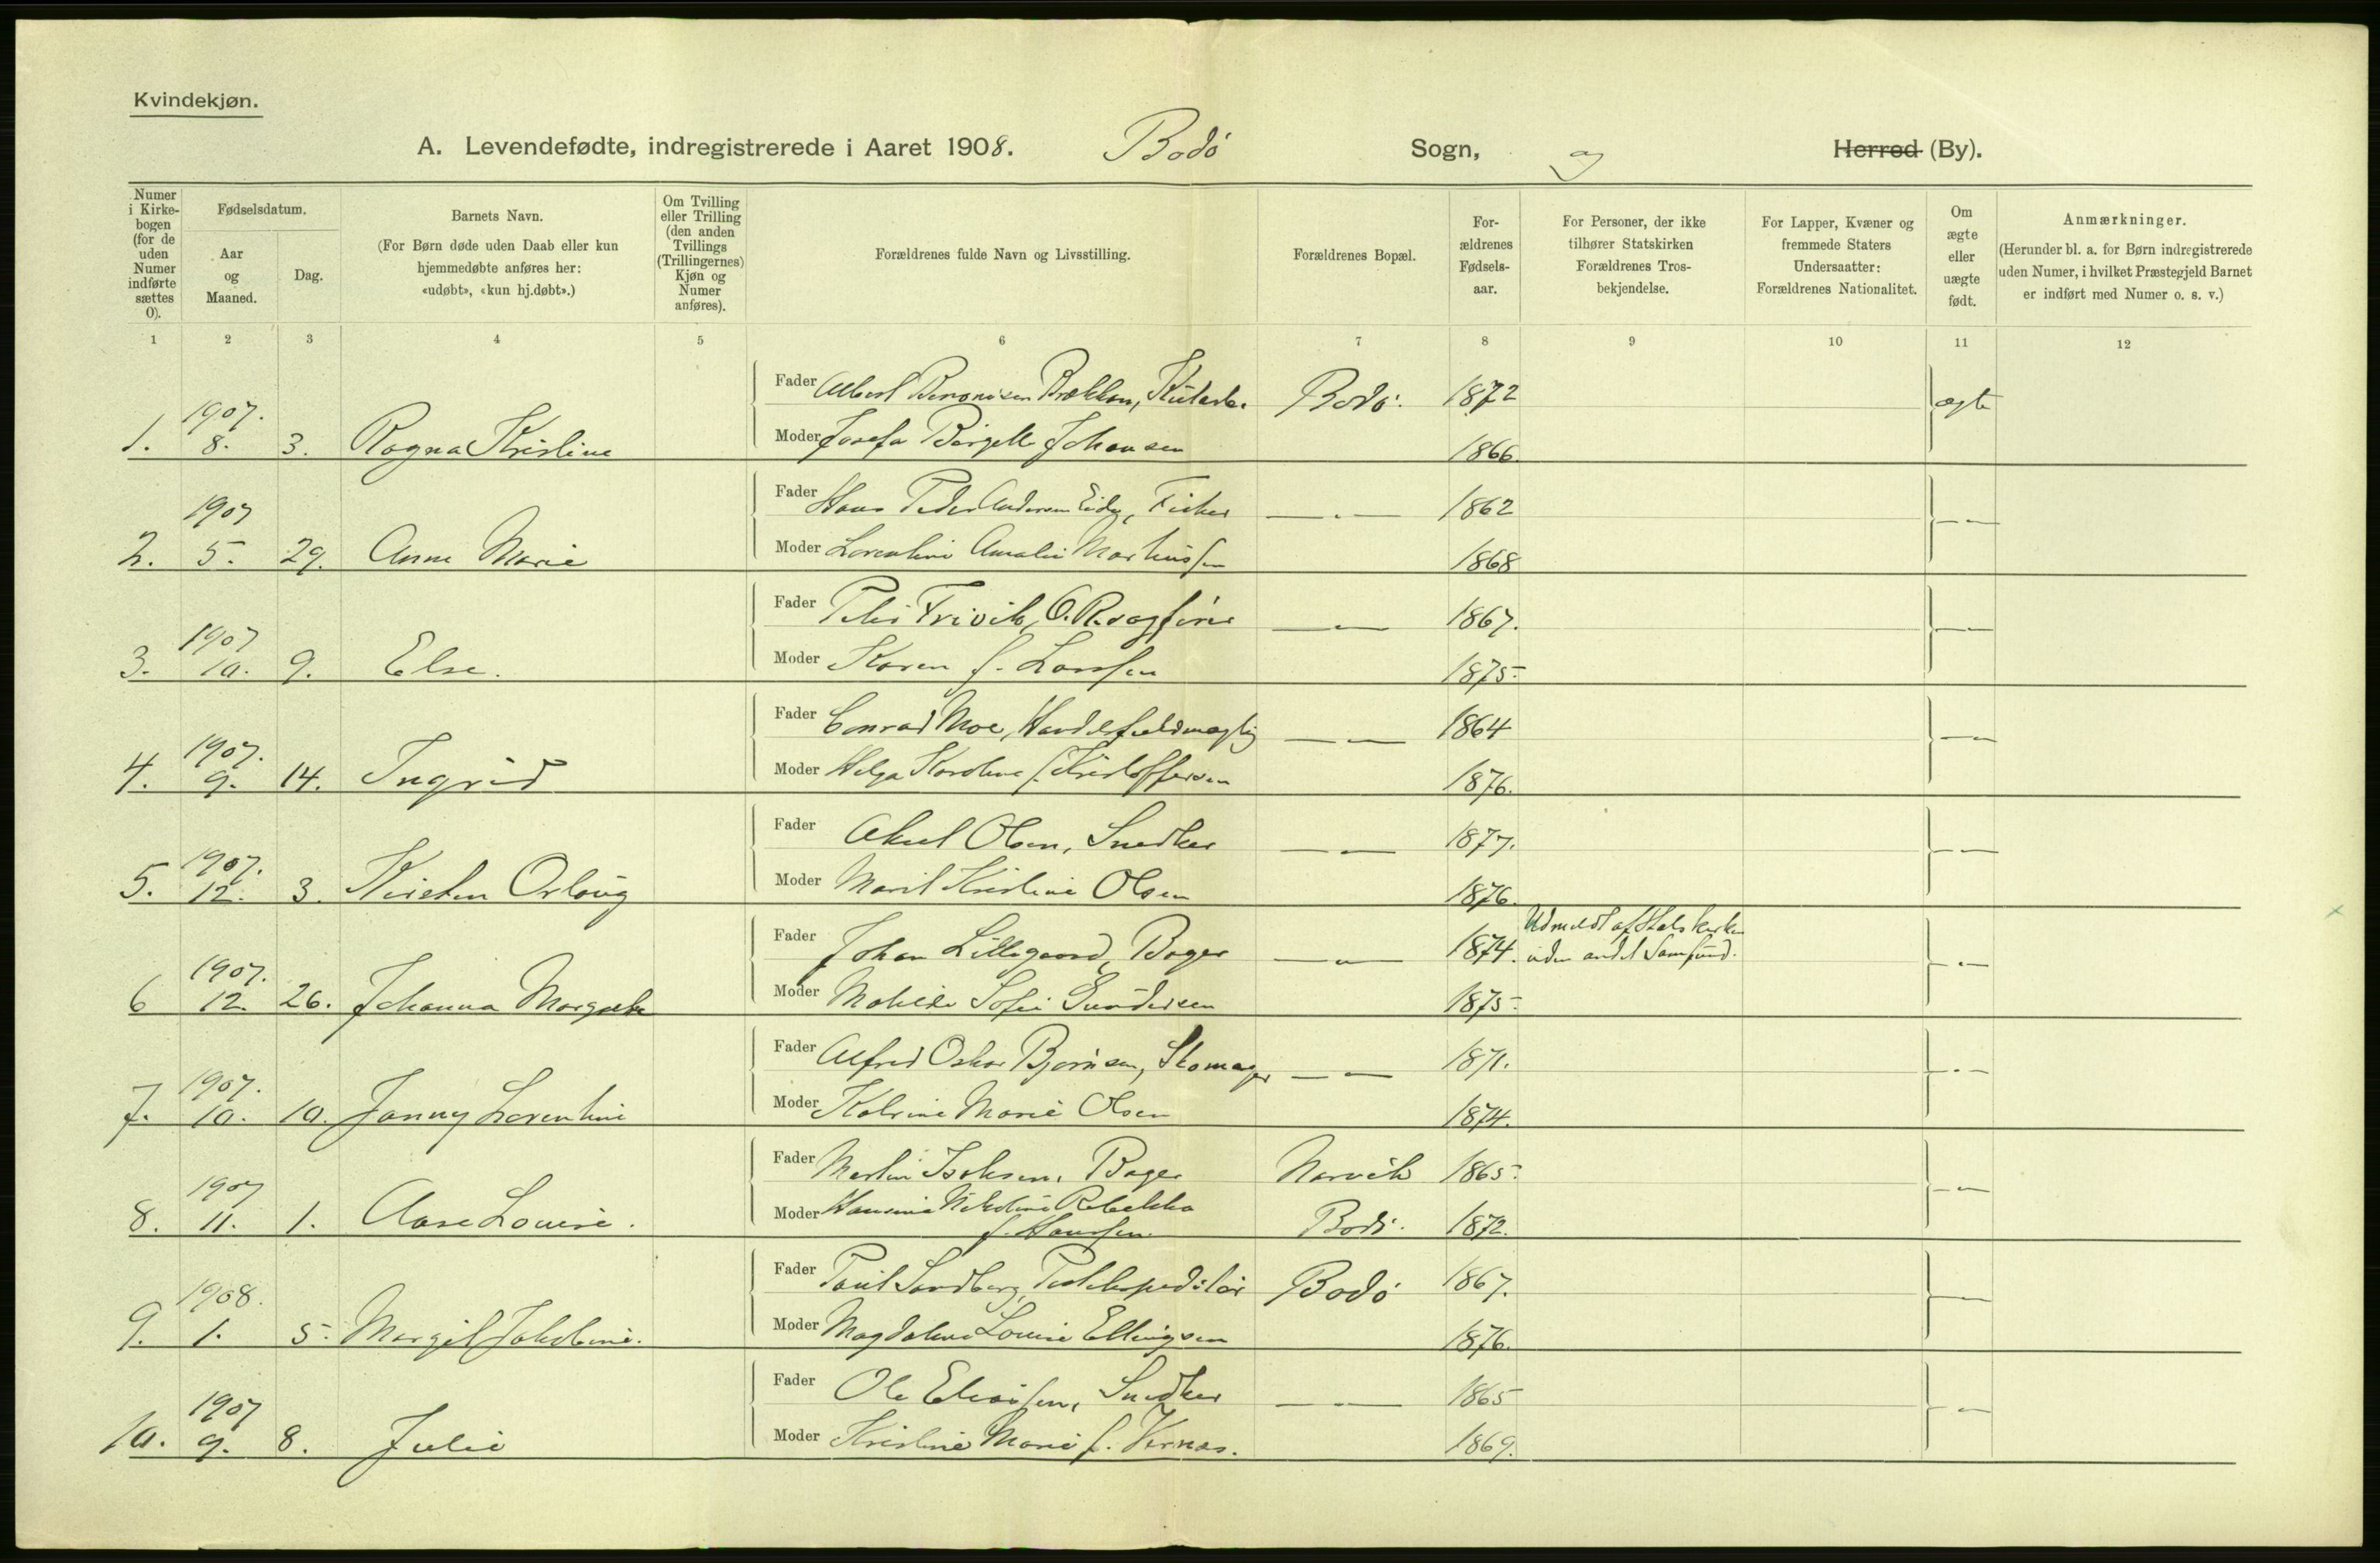 Kvindekjøn.
A. Levendefødte, indregistrerede i Aaret 1908. Bodø Sogn, og Herred (By).
Numer i Kirkebogen (for de uden Numer indførte sættes 0).
Fødselsdatum.
Aar og Maaned.
Dag.
Barnets Navn.
(For Børn døde uden Daab eller kun hjemmedøbte anføres her: «udøbt», «kun hj.døbt».)
Om Tvilling eller Trilling (den anden Tvillings (Trillingernes) Kjøn og Numer anføres).
Forældrenes fulde Navn og Livsstilling.
Forældrenes Bopæl.
For-ældrenes Fødsels-aar.
For Personer, der ikke tilhører Statskirken Forældrenes Tros-bekjendelse.
For Lapper, Kvæner og fremmede Staters Undersaatter: Forældrenes Nationalitet.
Om ægte eller uægte født.
Anmærkninger.
(Herunder bl. a. for Børn indregistrerede uden Numer, i hvilket Præstegjeld Barnet er indført med Numer o. s. v.)
1 2 3 4 5 6 7 8 9 10 11 12
Fader Albert Bernonisen Brækkan, Bodø. 1872 ægte
1. 1907. 8. 3. Ragna Kristine
Moder Josefa Bergette Johansen 1866.
Fader Hans Peder Andersen Eidø, Fisker — " — 1862 — " —
2. 1907 5. 29. Anne Marie
Moder Lorentine Amalie Martinussen 1868
Fader Peter Trivik, O.R.sagfører — " — 1867. — " —
3. 1907 10. 9. Else.
Moder Karen f. Larssen 1875.
Fader Conrad Moe, Handelsfuldmægtig — " — 1864 — " —
4. 1907. 9. 14. Ingrid
Moder Helga Karoline f. Kristoffersen 1876.
Fader Aksel Olsen, Snedker — " — 1877. — " —
5. 1907. 12. 3. Kirsten Orlaug
Moder Marit Kristine Olsen 1876.
Fader Johan Lillegaard, Bager — " — 1874. Udmeldt af Statskirken
uden andet Samfund. — " —
6 1907. 12. 26. Johanna Margrete
Moder Matilde Sofie Gundersen 1875.
Fader Alfred Oskar Bjørnsen, Skomager — " — 1871. — " —
7. 1907. 10. 10. Janny Lorentine
Moder Katrine Marie Olsen 1874.
Fader Martin Isaksen, Bager Narvik 1865. — " —
8. 1907 11. 1. Aase Louise.
Moder Hansine Nikoline Rebekka
f. Hanssen. Bodø. 1872.
Fader Paul Sandberg, Postekspeditør Bodø 1867. — " —
9. 1908. 1. 5. Margit Jakobine.
Moder Magdalena Louise Ellingsen 1876.
Fader Ole Eliassen, Snedker — " — 1865 — " —
10. 1907 9. 8. Julie
Moder Kristine Marie f. Vernes. 1869.